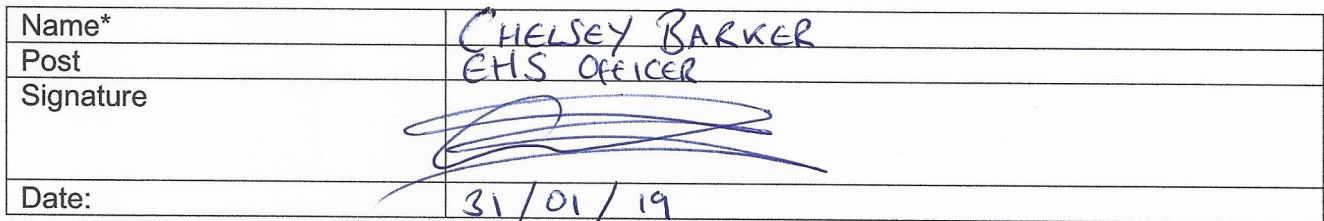 Name* CHELSEY BARKER
Post EHS OFFICER
Signature
Date: 31/01/19